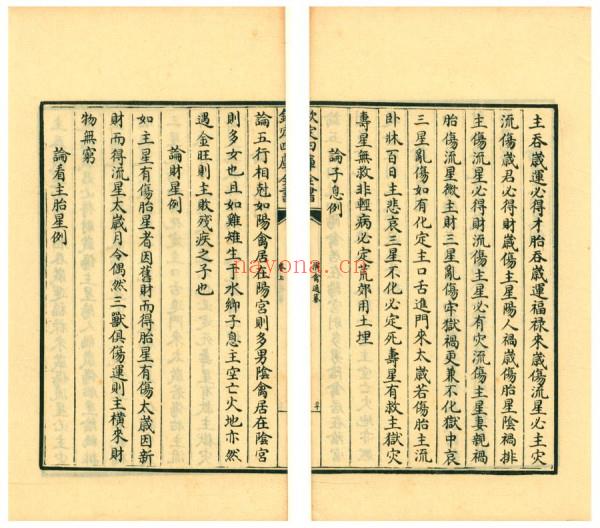 主吞歲運必得才胎吞歲運福禄來歲傷流星必主災
流傷歲君必得財歲傷主星陽人禍歲傷胎星陰禍排
主傷流星必得財流傷主星必有災流傷主星妻親禍
胎傷流星微主財三星亂傷牢獄禍更兼不化獄中哀
三星亂傷如有化定主口舌進門來太歲若傷胎主流
卧牀百日主悲哀三星不化必定死壽星有救主獄災
壽星無救非輕病必定荒郊用土埋
論子息例
欽定四庫全書
論五行相尅如陽禽居在陽宮則多男陰禽居在陰宮
則多女也且如雞雉生于水鄉子息主空亡火地亦然
遇金旺則主敗殘疾之子也
論財星例
如主星有傷胎星者因舊財而得胎星有傷太歲因新
財而得流星太歲月令偶然三獸俱傷運則主橫來財
物無窮
論看主胎星例
nayona.cn